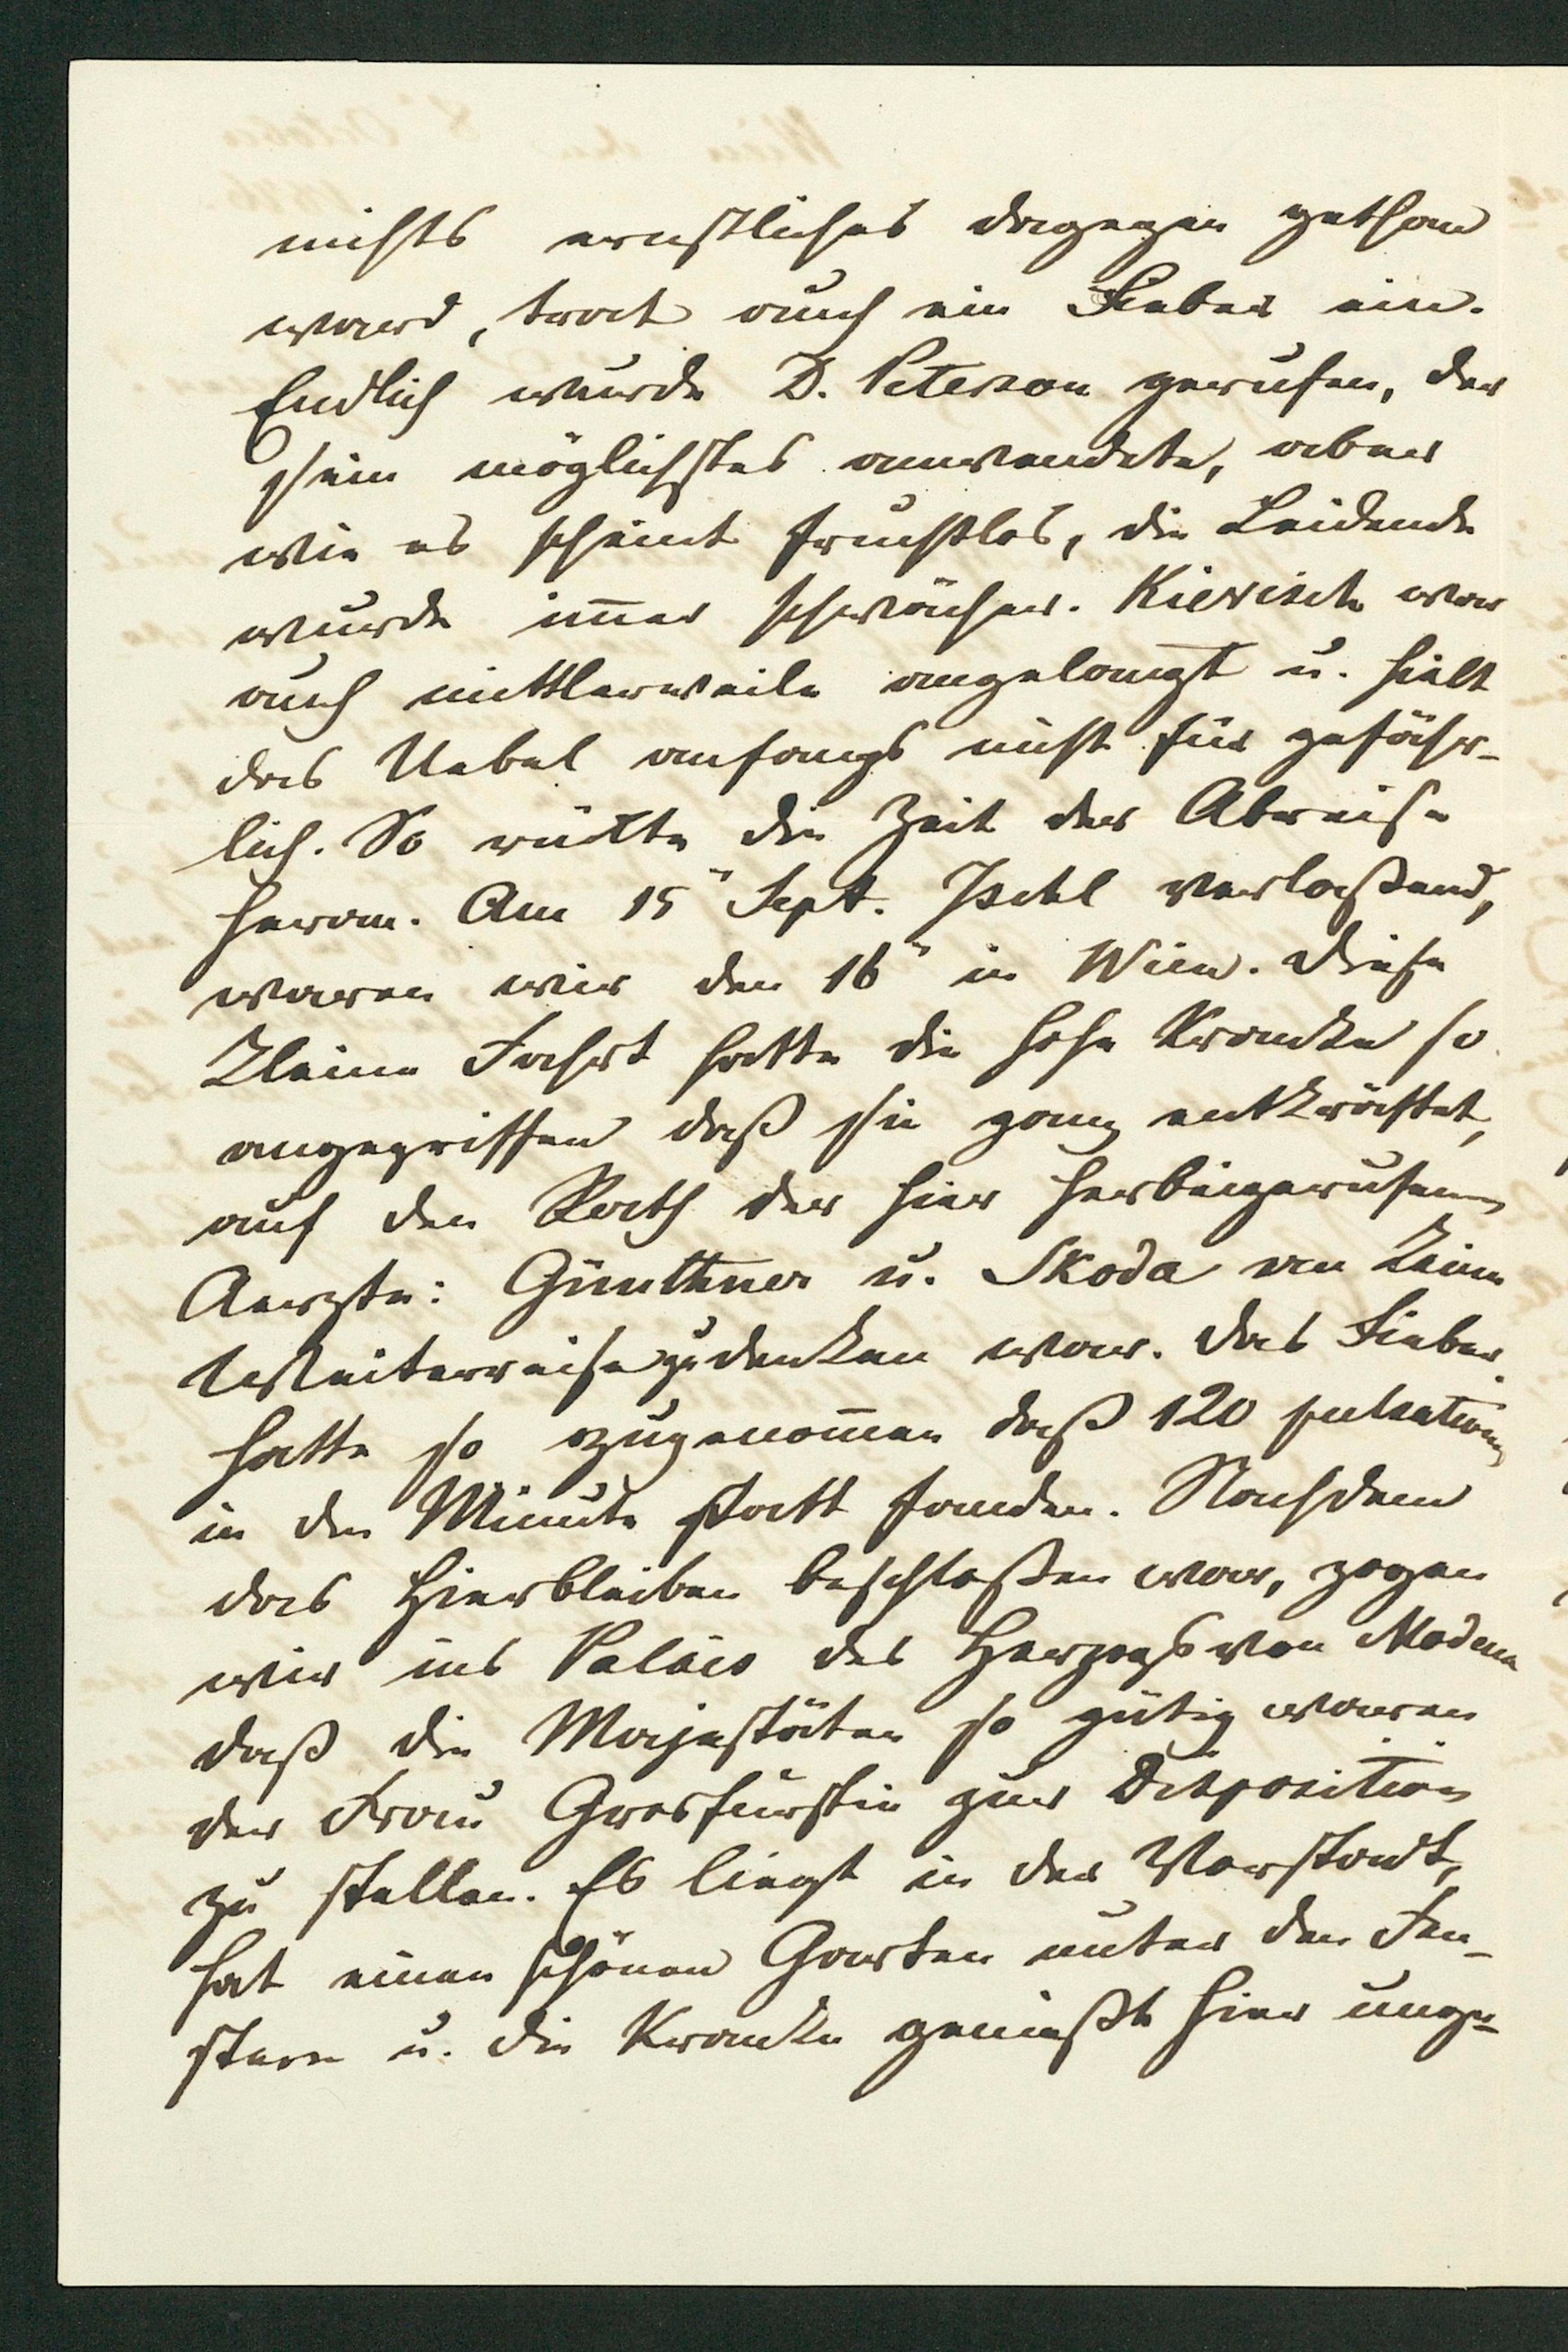 nichts ernstliches dagegen gethan
ward, trat auch ein Fieber ein.
Endlich wurde D. Peterson gerufen, der
sein möglichstes anwendete, aber
wie es scheint fruchtlos, die Leidende
wurde im̅er schwächer. Kievisch war
auch mittlerweile angelangt u. hielt
das Uebel anfangs nicht für gefähr-
lich. So rückte die Zeit der Abreise
heran. Am 15" Sept. Ischl verlaßend,
waren wir den 16" in Wien. Diese
kleine Fahrt hatte die hohe Kranke so
angegriffen daß sie ganz entkräftet,
auf den Rath der hier herbeigerufenen
Aerzte: Günthner u. Skoda an keine
Weiterreise zu denken war. Das Fieber
hatte so zugenom̅en daß 120 pulsationen
in der Minute statt fanden. Nachdem
das Hierbleiben beschloßen war, zogen
wir ins Palais des Herzogs von Modena
daß die Majestäten so gütig waren
der Frau Grosfürstin zur Disposition
zu stellen. Es liegt in der Vorstadt,
hat einen schönen Garten unter den Fen-
stern u. die Kranke genießt hier unge-